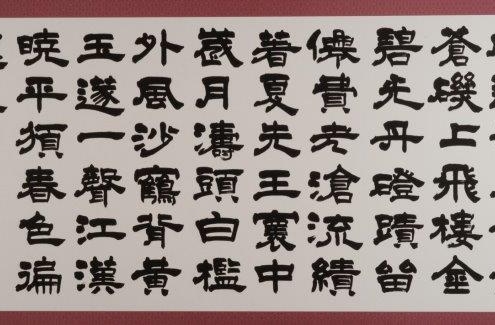 蒼磯上飛樓金
碧先丹磴蹟留
僊費老滄流績
著夏先王寰中
歲月濤頭白檻
外風沙鶴背黃
玉遂一聲江漢
曉平須春色徧